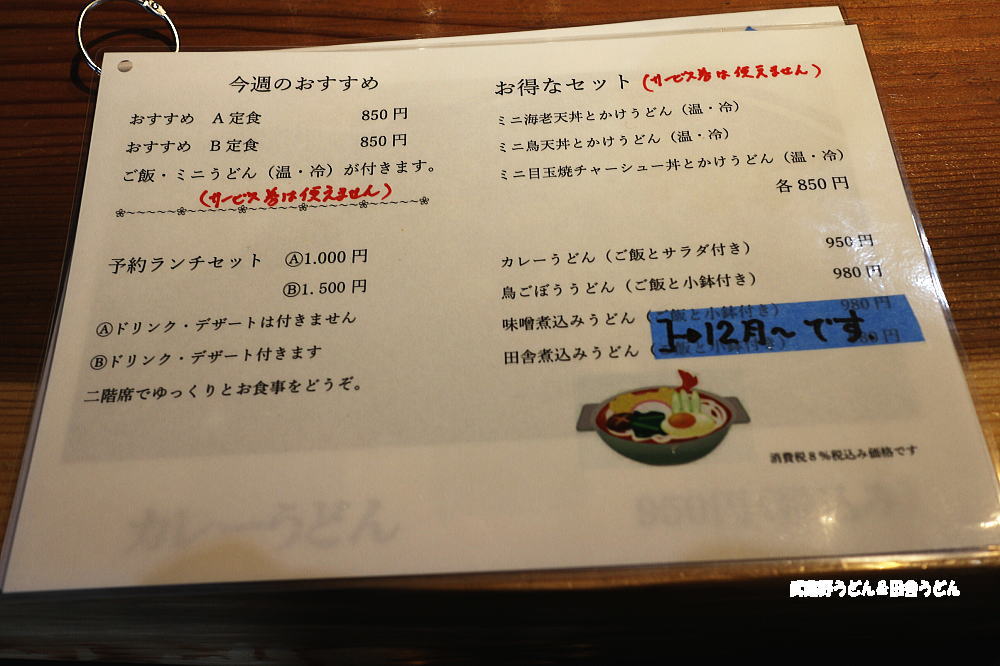 今週のおすすめ
おすすめ A定食 850円
おすすめ B定食 850円
ご飯・ミニうどん（温・冷）が付きます。
(サービス券は使えません)
予約ランチセット Ⓐ1.000円
Ⓑ1.500円
Ⓐドリンク・デザートは付きません
Ⓑドリンク・デザート付きます
二階席でゆっくりとお食事をどうぞ。
お得なセット (サービス券は使えません)
ミニ海老天丼とかけうどん（温・冷）
ミニ鳥天丼とかけうどん（温・冷）
ミニ目玉焼チャーシュー丼とかけうどん（温・冷）
各850円
カレーうどん（ご飯とサラダ付き） 950円
鳥ごぼううどん（ご飯と小鉢付き） 980円
味噌煮込みうどん（ご飯と小鉢付き） 980円
田舎煮込みうどん（ご飯と小鉢付き）
→12月〜です。
消費税８％税込み価格です
カレーうどん
武蔵野うどん＆田舎うどん